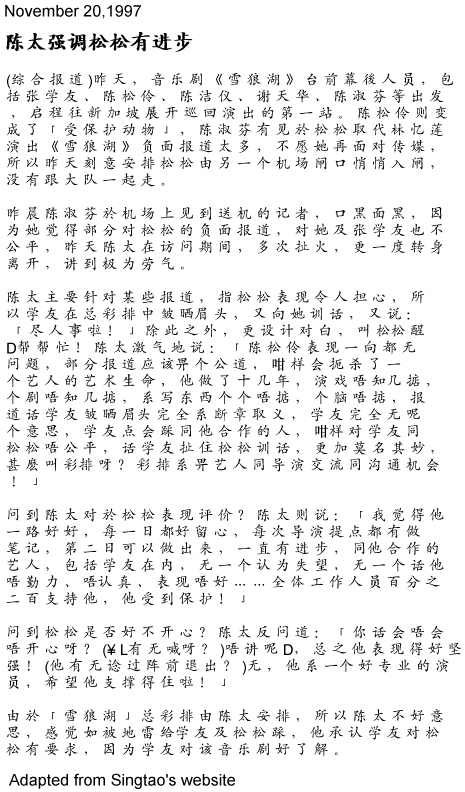 November 20,1997
陈太强调松松有进步
(综合报道)昨天，音乐剧《雪狼湖》台前幕後人员，包
括张学友、陈松伶、陈洁仪、谢天华、陈淑芬等出发
，启程往新加坡展开巡回演出的第一站。陈松伶则变
成了「受保护动物」，陈淑芬有见於松松取代林忆莲
演出《雪狼湖》负面报道太多，不愿她再面对传媒，
所以昨天刻意安排松松由另一个机场闸口悄悄入闸，
没有跟大队一起走。
昨晨陈淑芬於机场上见到送机的记者，口黑面黑，因
为她觉得部分对松松的负面报道，对她及张学友也不
公平，昨天陈太在访问期间，多次扯火，更一度转身
离开，讲到极为劳气。
陈太主要针对某些报道，指松松表现令人担心，所
以学友在总彩排中皱晒眉头，又向她训话，又说：
「尽人事啦！」除此之外，更设计对白，叫松松醒
D帮帮忙！陈太激气地说：「陈松伶表现一向都无
问题，部分报道应该畀个公道，咁样会扼杀了一
个艺人的艺术生命，他做了十几年，演戏唔知几掂，
个剧唔知几掂，系写东西个个唔掂，个脑唔掂，报
道话学友皱晒眉头完全系断章取义，学友完全无呢
个意思，学友点会踩同他合作的人，咁样对学友同
松松唔公平，话学友扯住松松训话，更加莫名其妙，
甚麽叫彩排呀？彩排系畀艺人同导演交流同沟通机会
！」
问到陈太对於松松表现评价？陈太则说：「我觉得他
一路好好，每一日都好留心，每次导演提点都有做
笔记，第二日可以做出来，一直有进步，同他合作的
艺人，包括学友在内，无一个认为失望，无一个话他
唔勤力、唔认真、表现唔好……全体工作人员百分之
二百支持他，他受到保护！」
问到松松是否好不开心？陈太反问道：「你话会唔会
唔开心呀？(¥L有无喊呀？)唔讲呢D，总之他表现得好坚
强！(他有无谂过阵前退出？)无，他系一个好专业的演
员，希望他支撑得住啦！」
由於「雪狼湖」总彩排由陈太安排，所以陈太不好意
思，感觉如被地雷给学友及松松踩，他承认学友对松
松有要求，因为学友对该音乐剧好了解。
Adapted from Singtao's website